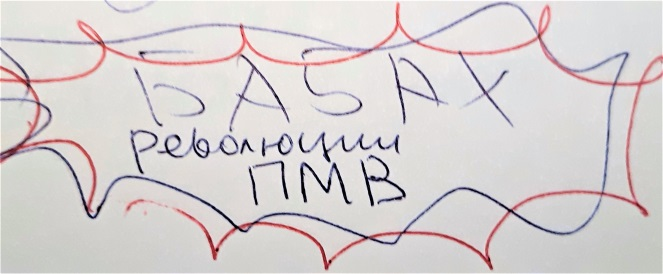 БАБАХ
революции
ПМВ